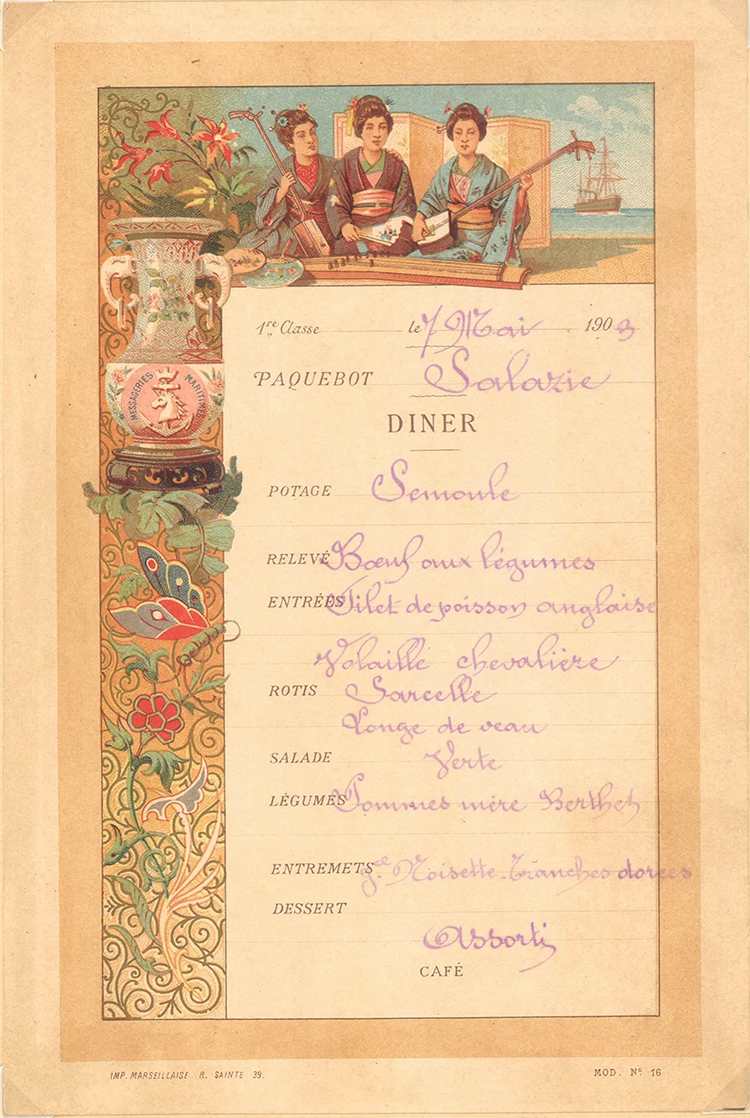 MESSAGERIES MARITIMES
1re Classe le 7 Mai 1903
PAQUEBOT Salazie
DINER
POTAGE Semoule
RELEVÉ Bœuf aux légumes
ENTRÉES Filet de poisson anglaise
Volaille chevalière
ROTIS Sarcelle
Longe de veau
SALADE Verte
LÉGUMES Pommes mère Berthet
ENTREMETS gce Noisette-Tranches dorées
DESSERT
Assorti
CAFÉ
IMP. MARSEILLAISE R. SAINTE 39.
MOD. No 16